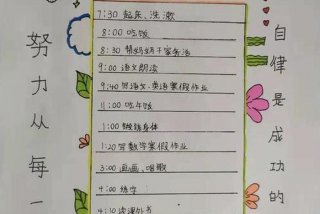 努力从每一
7:30 起床、洗漱
8:00 吃饭
8:30 帮妈妈干家务活
9:00 语文朗读
9:40 写语文、英语寒假作业
11:00 吃午饭
1:00 锻炼身体
1:20 写数学寒假作业
3:00 画画、唱歌
4:00 练字
4:10 读课外书
自律是成功的